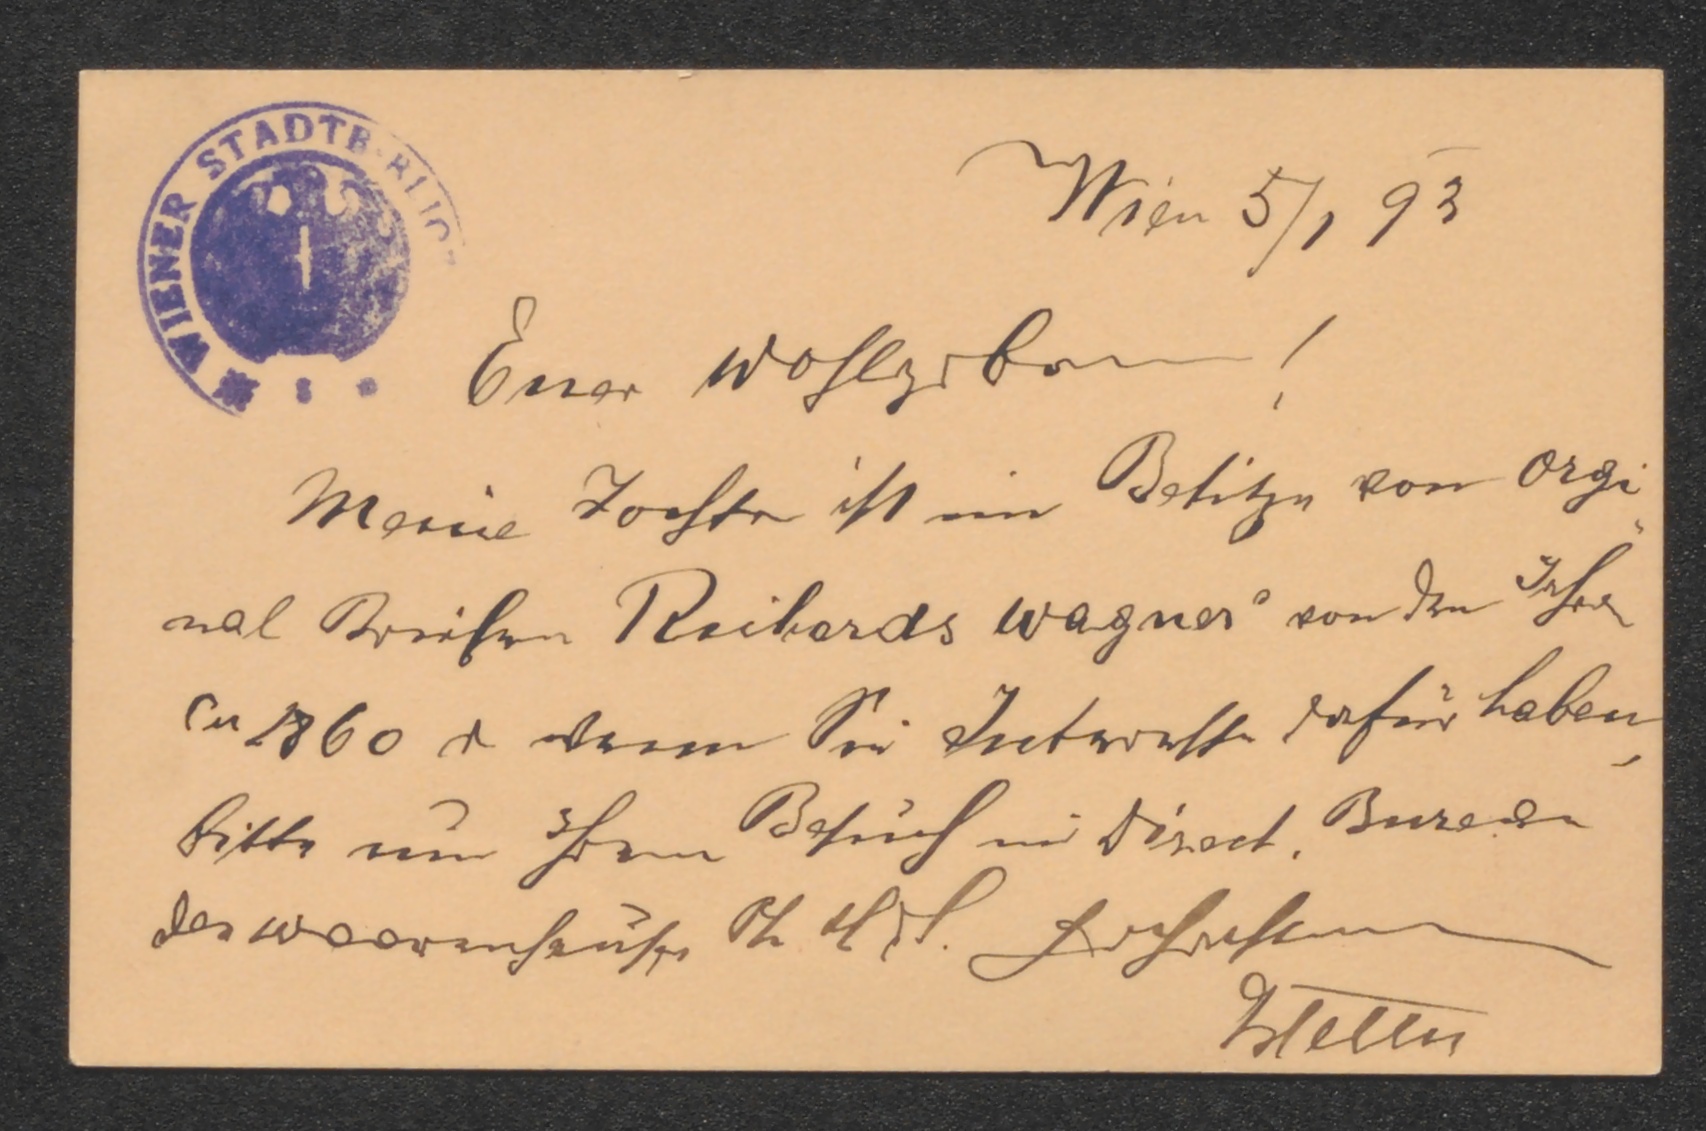 WIENER STADTB
Wien 5/1 93
Euer Wohlgeboren!
Meine Tochter ist im Besitze von Orgi
nal Briefen Reichards Wagner von den Jahren
1860 wenn Sie Interesse dafür haben,
bitte um Ihren Besuch im Direct. Bureau
des Waarenhauses